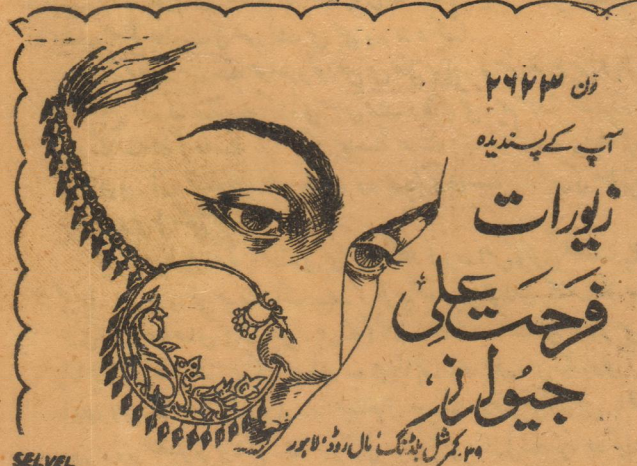 فون ۲۶۲۳
آپ کے پسندیدہ
زیورات
فرحت علی
جیولرز
۳۹ کمرشل بلڈنگ مال روڈ لاہور
SELVEL